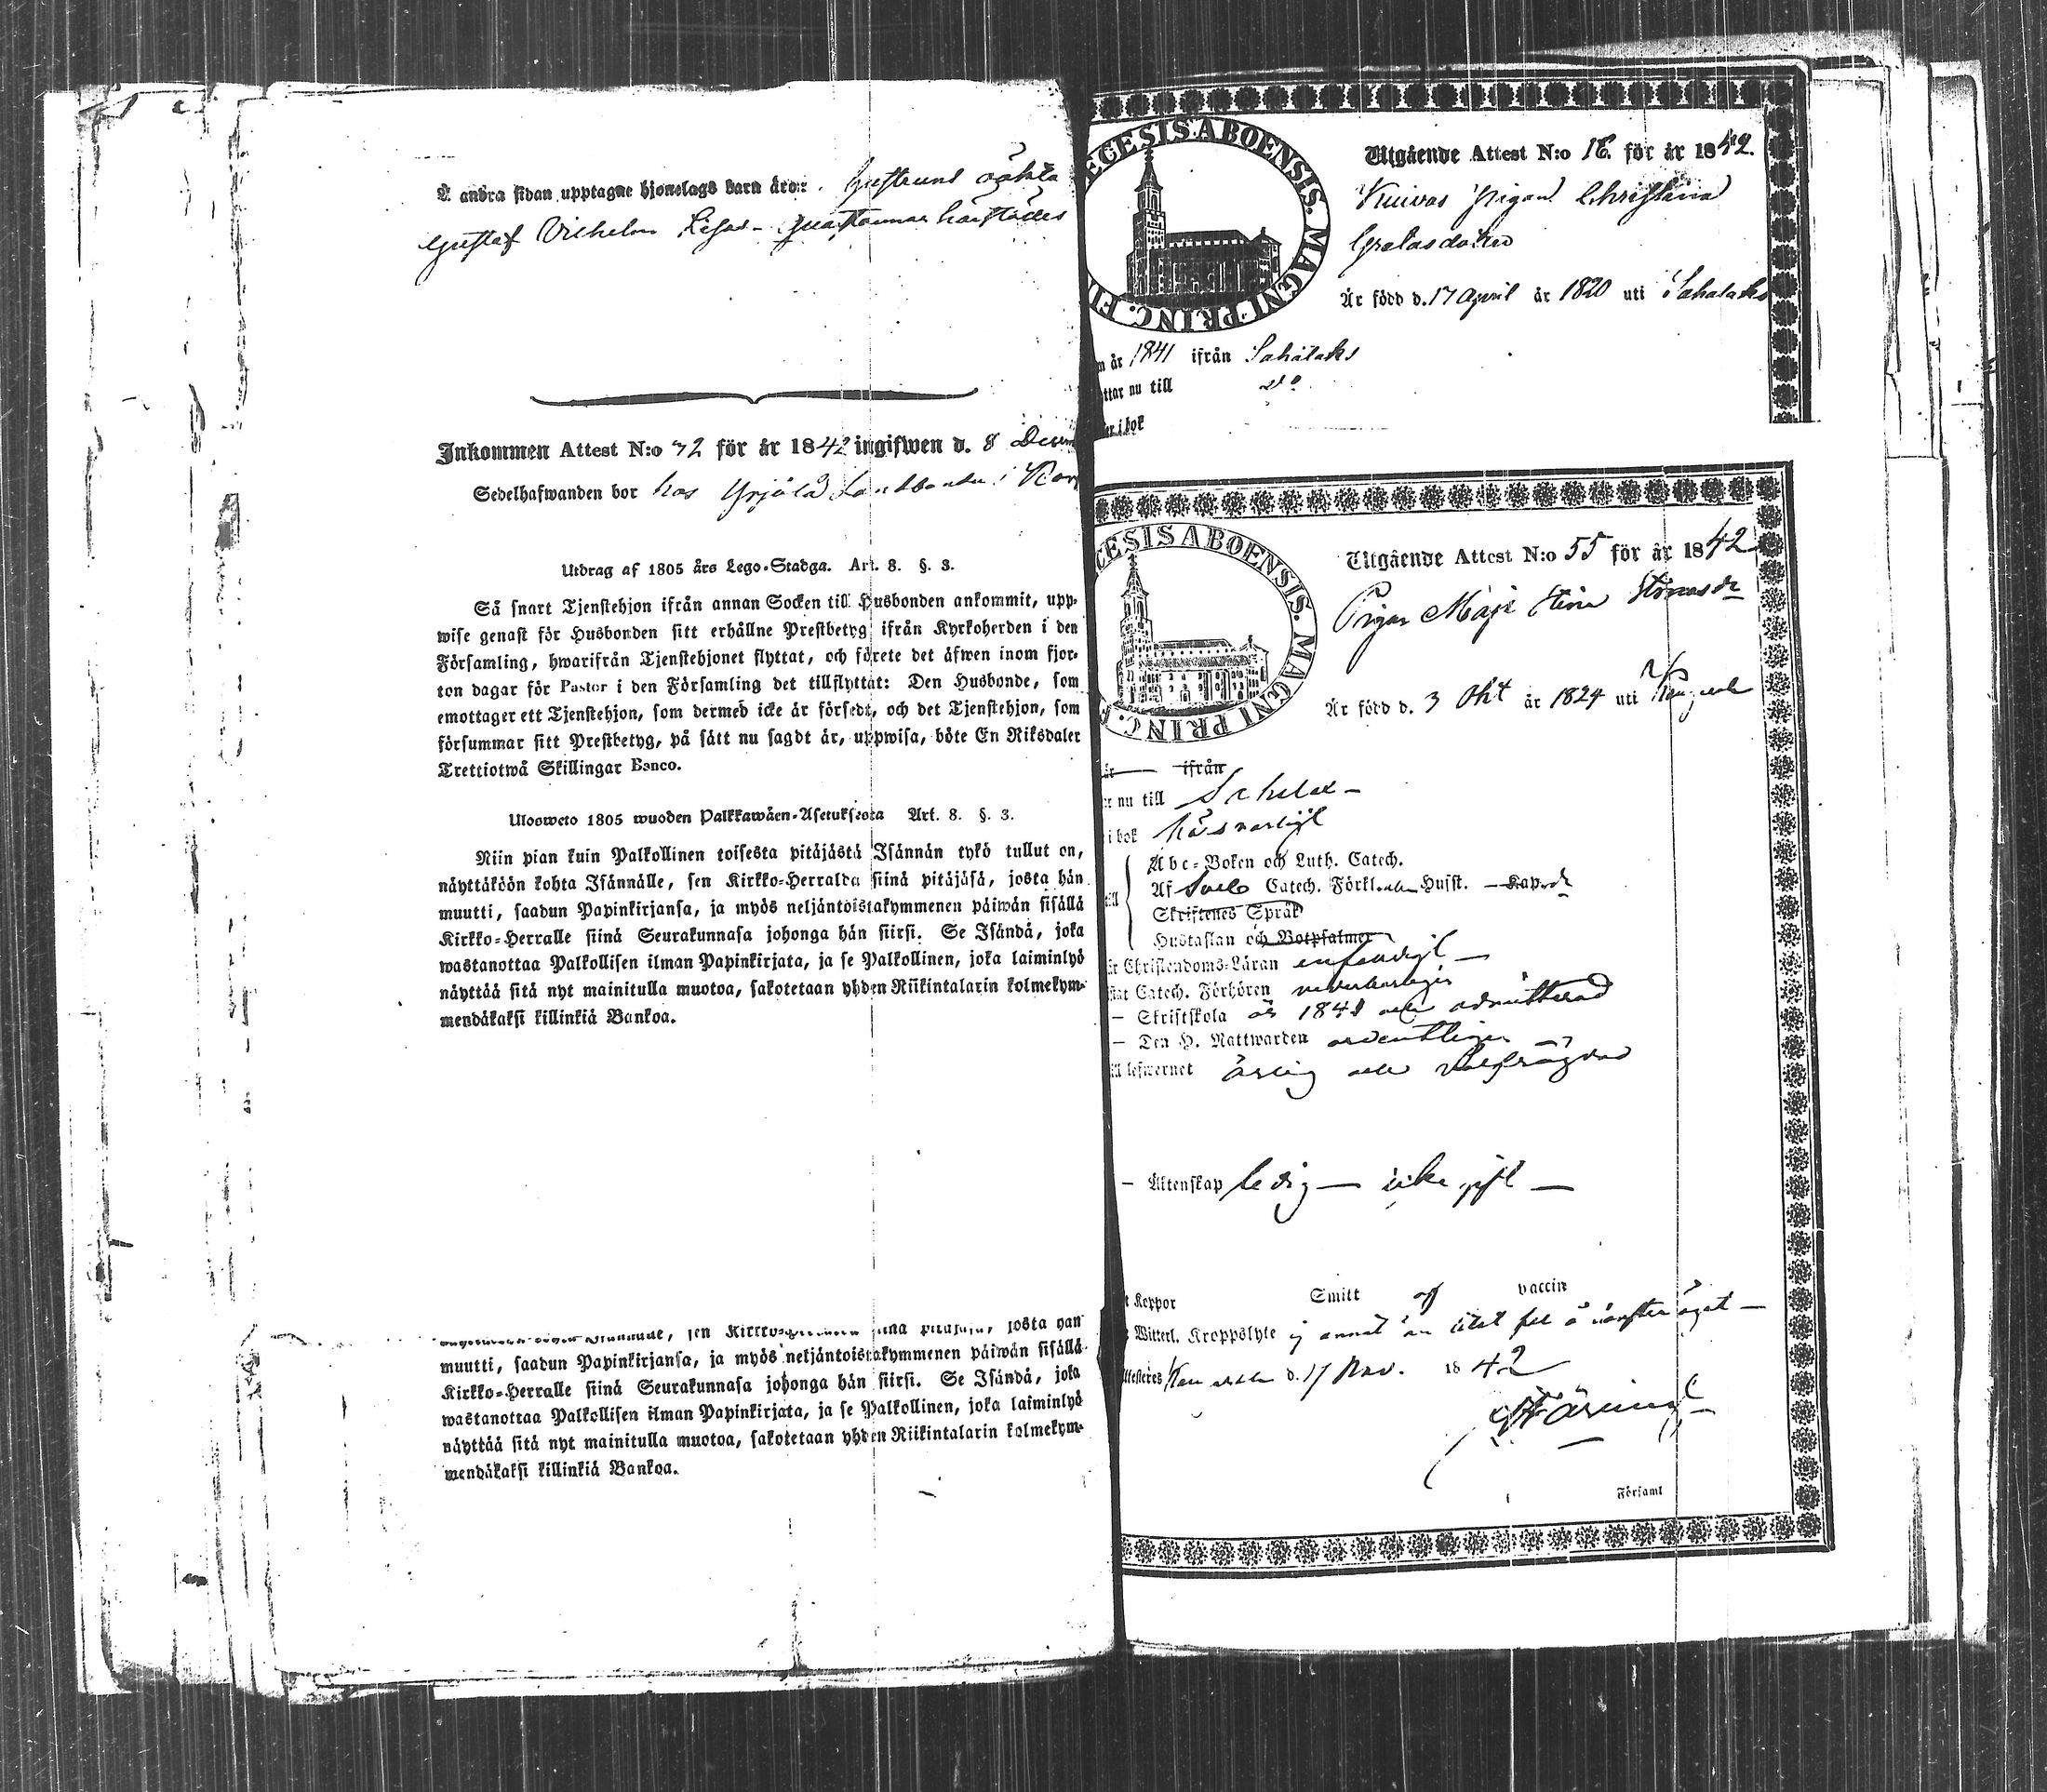 Å andra sidan upptagne hjonelags barn äro: Hustruns oäkta
Gustaf Vilhelm
Inkommen Attest N:o 72 för år 1842 ingifwen d. 8 Decem
Sedelhafwanden bor hos Yrjölä
Utdrag af 1805 års Lego-Stadga. Art. 8. §. 3.
Så snart Tjenstehjon ifrån annan Socken till Husbonden ankommit, upp-
wise genast för Husbonden sitt erhållne Prestbetyg ifrån Kyrkoherden i den
Församling, hwarifrån Tjenstehjonet flyttat, och förete det äfwen inom fjor-
ton dagar för Pastor i den Församling det tillflyttat: Den Husbonde, som
emottager ett Tjenstehjon, som dermed icke är försedt, och det Tjenstehjon, som
försummar sitt Prestbetyg, på sätt nu sagdt är, uppwisa, böte En Riksdaler
Trettiotwå Skillingar Banco.
Ulosweto 1805 wuoden Palkkawäen-Asetuksesta Art. 8. §. 3.
Niin pian kuin Palkollinen toisesta pitäjästä Isännän tykö tullut on,
näyttäköön kohta Isännälle, sen Kirkko-Herralda siinä pitäjäsä, josta hän
muutti, saadun Papinkirjansa, ja myös neljäntoistakymmenen päiwän sisällä
Kirkko-Herralle siinä Seurakunnasa johonga hän siirsi. Se Isändä, joka
wastanottaa Palkollisen ilman Papinkirjata, ja se Palkollinen, joka laiminlyö
näyttää sitä nyt mainitulla muotoa, sakotetaan yhden Riikintalarin kolmekym-
mendäkaksi killinkiä Bankoa.
Isännälle, sen Kirkko-Herralda siinä pitäjäsä, josta hän
muutti, saadun Papinkirjansa, ja myös neljäntoistakymmenen päiwän sisällä
Kirkko-Herralle siinä Seurakunnasa johonga hän siirsi. Se Isändä, joka
wastanottaa Palkollisen ilman Papinkirjata, ja se Palkollinen, joka laiminlyö
näyttää sitä nyt mainitulla muotoa, sakotetaan yhden Riikintalarin kolmekym-
mendäkaksi killinkiä Bankoa.
ECESIS ABOENSIS. MAGNI PRINC. FI
Utgående Attest N:o 16. för år 1842.
Pigan Christina
Är född d. 17 April år 1820 uti Sahalaks
m år 1841 ifrån Sahalaks
ttar nu till do
er i bok
CESIS ABOENSIS. MAGNI PRINC. F
Utgående Attest N:o 55 för år 1842
Pigan Maja Stina
Är född d. 3 Okt år 1824 uti
år — ifrån
r nu till Sahalax —
i bok
Abc-Boken och Luth. Catech.
Af Sveb Catech. Förkl. Husst. — Kap.
Skriftenes Språk
Hustaflan och Botpsalmer
är Christendoms-Läran
Catech. Förhören
— Skriftskola år 1841 och admitterad
— Den H. Nattwarden ordentligen
ll lefwernet ärlig och välfrägdad
— Äktenskap ledig — icke gift —
t Koppor Smitt af vaccin
Witterl. Kroppslyte ej annat än litet fel å wänstra ögat —
Attesteres d. 17 Nov. 1842
Församl